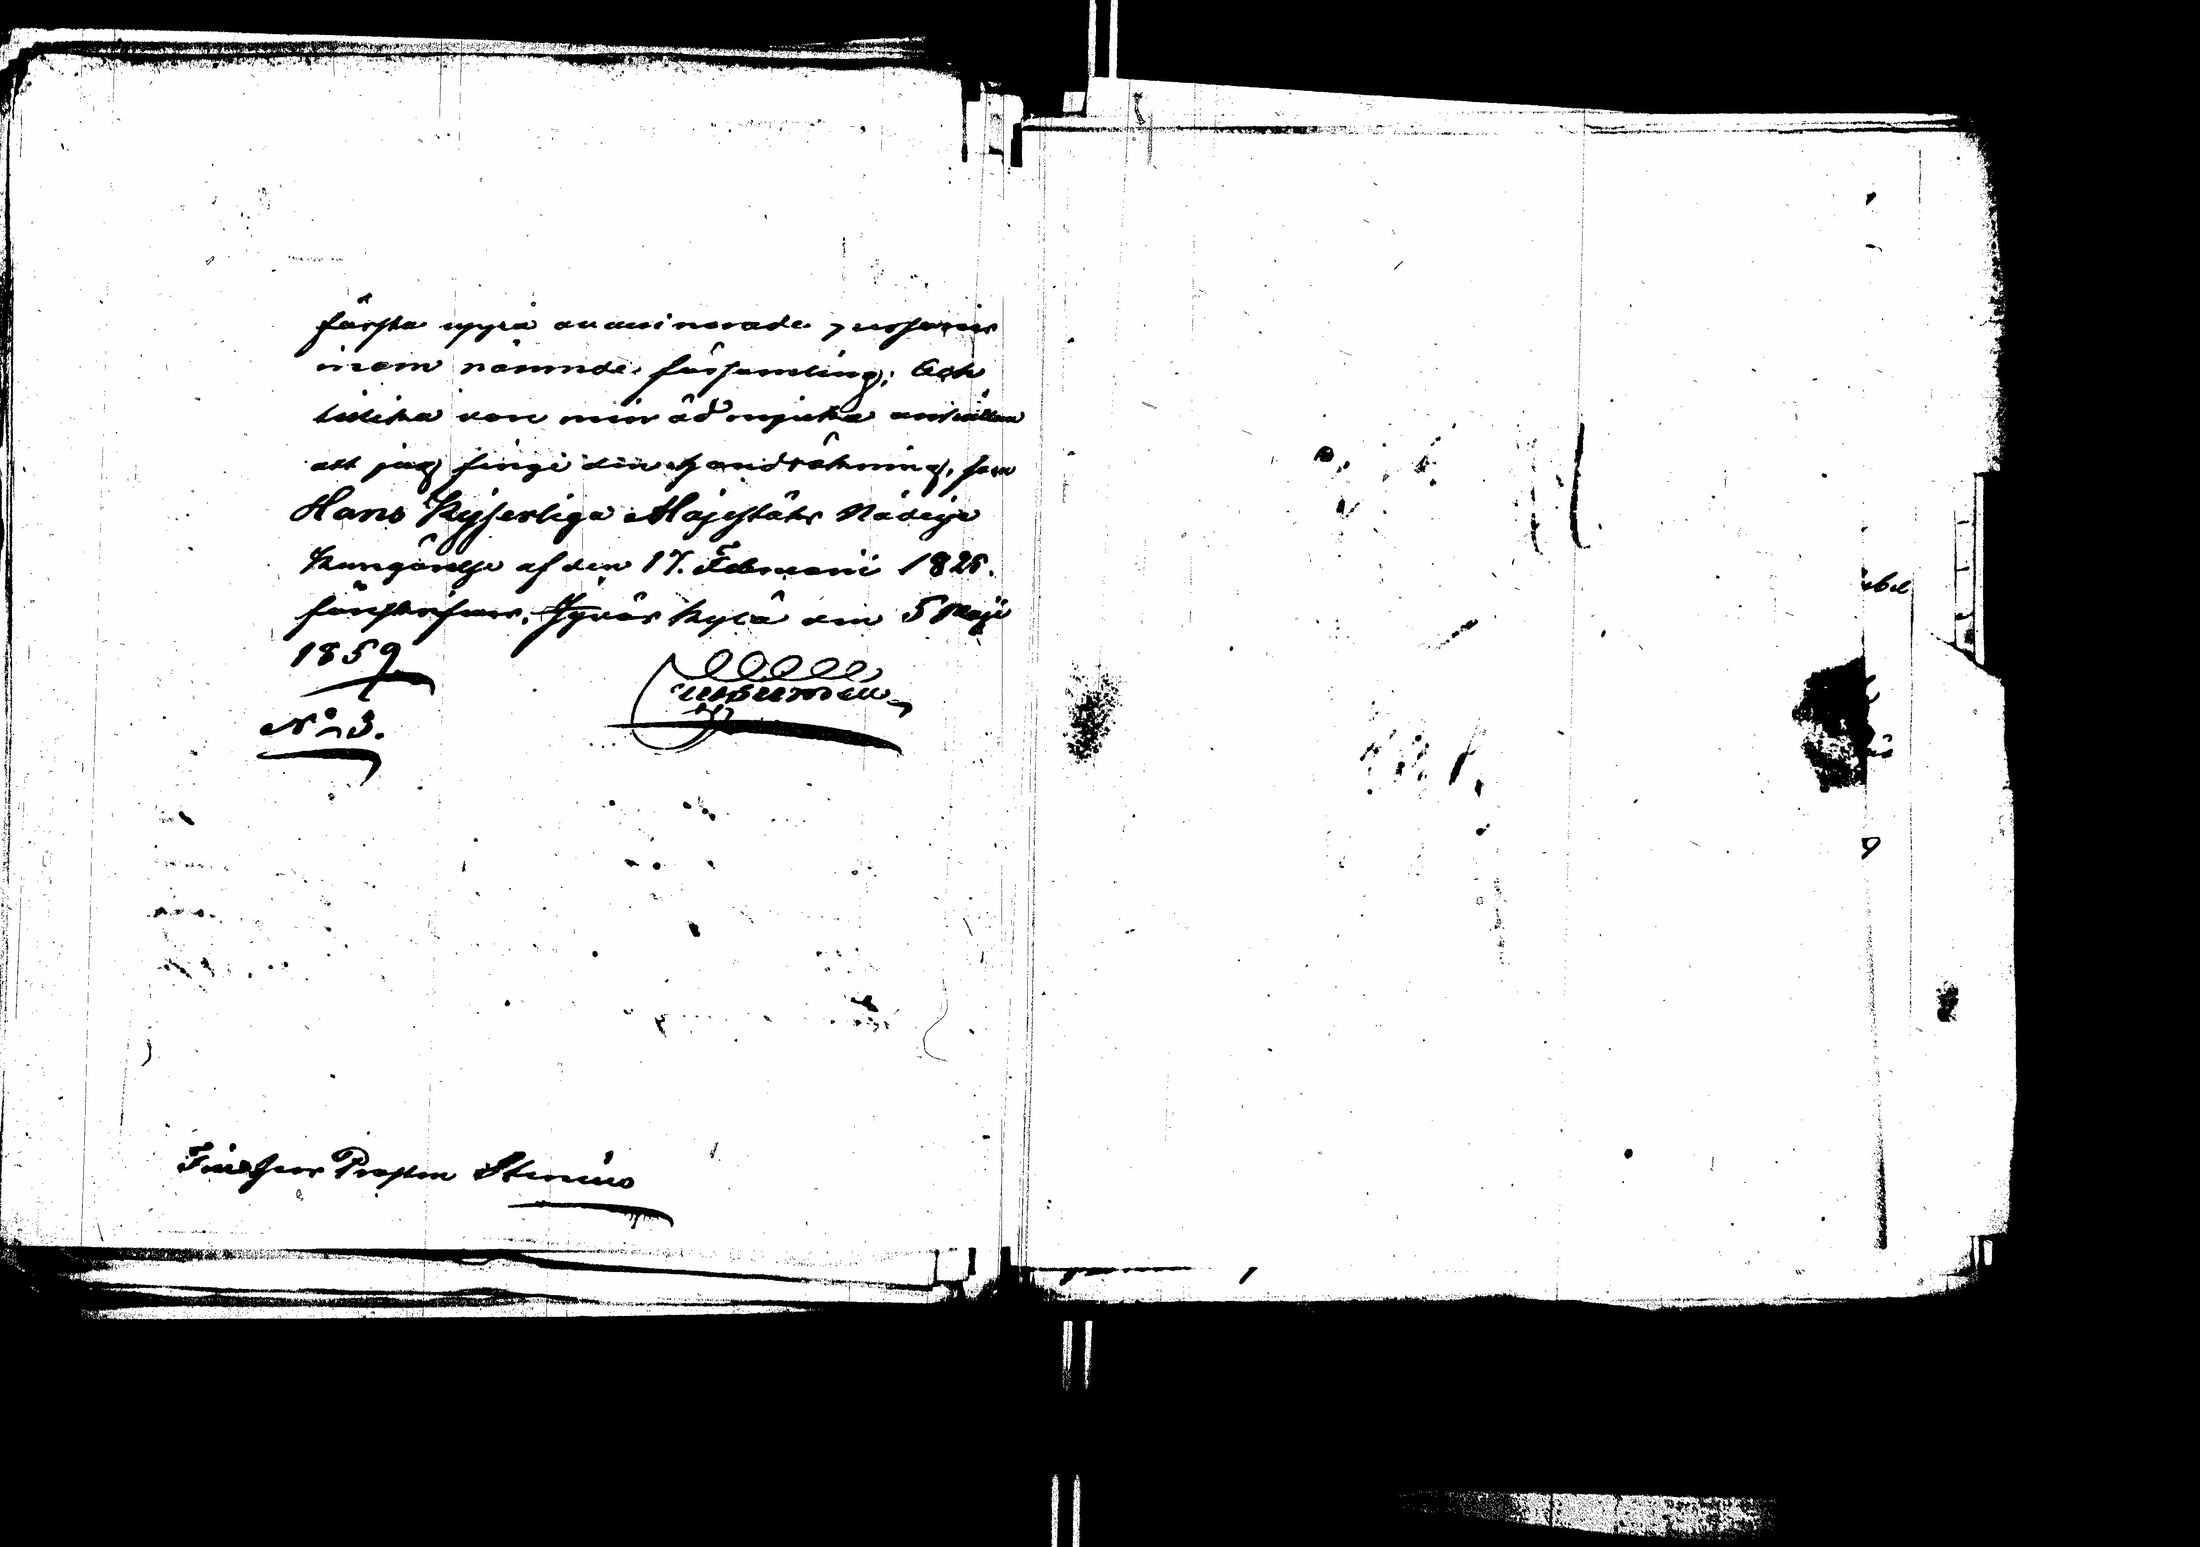 första uppå examinerade personer
inom nämnde församling; Och
tillika vore min ödmjuka anhållan
att jag finge den Handräkning, som
Hans Kejserliga Majestäts Nådige
Kungörelse af den 17. Februarii 1825.
föreskrifver. Jyväs kylä den 5 Maji
1859
No 3.
Till Herr Prosten Stenius